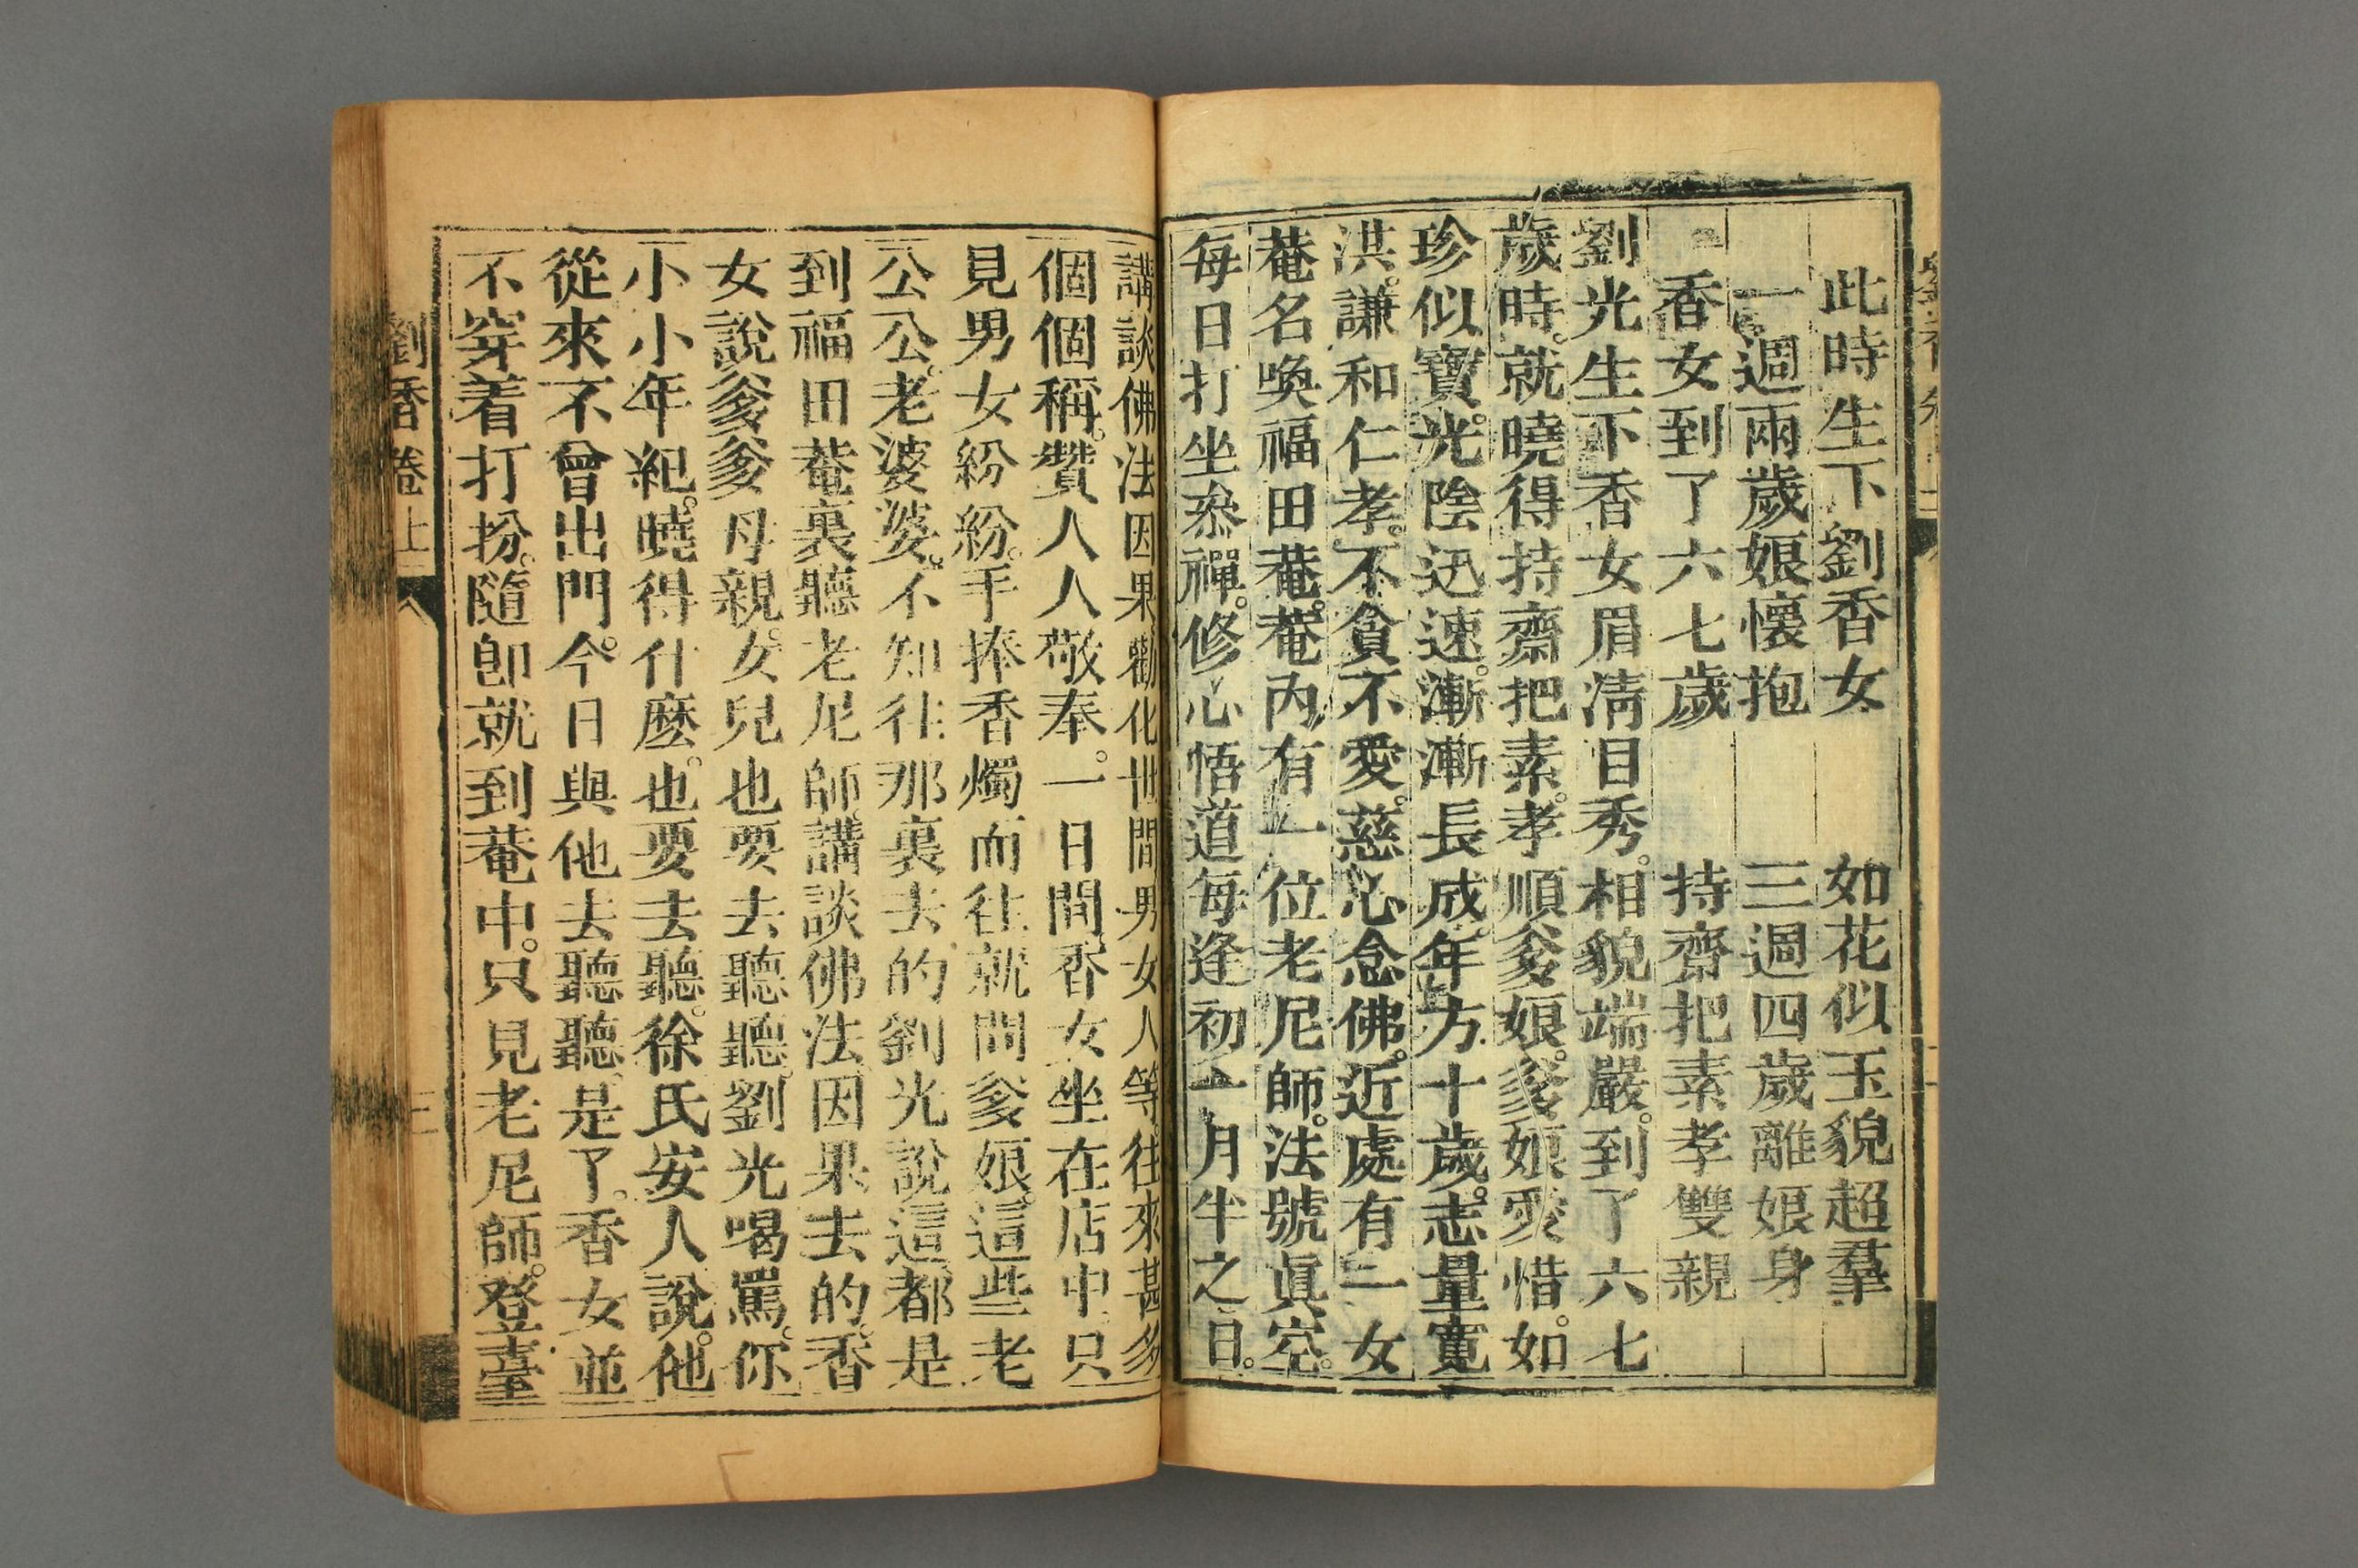 此時生下劉香女　如花似玉貌超羣
一週兩歲娘懷抱　三週四歲離娘身
香女到了六七歲　持齋把素孝雙親
劉光生下香女眉清目秀。相貌端嚴。到了六七
歲時。就曉得持齋把素。孝順爹娘。爹娘愛惜。如
珍似寶。光陰迅速。漸漸長成。年方十歲。志量寬
洪。謙和仁孝。不貪不愛。慈心念佛。近處有一女
菴名喚福田菴。菴內有一位老尼師。法號眞空。
每日打坐叅禪。修心悟道每逢初一月半之日。
講談佛法因果勸化世間男女人等往來甚多
個個稱。贊人人敬奉。一日間香女坐在店中只
見男女紛紛。手捧香燭而往就問爹娘。這些老
公公。老婆婆。不知往那裏去的劉光說這都是
到福田菴裏聽老尼師。講談佛法因果去的。香
女說爹爹母親。女兒也要去聽聽。劉光喝罵。你
小小年紀。曉得什麽。也要去聽。徐氏安人說。他
從來不曾出門。今日與他去聽聽。是了。香女並
不穿着打扮。隨卽就到菴中。只見老尼師。登臺
劉香卷上
三